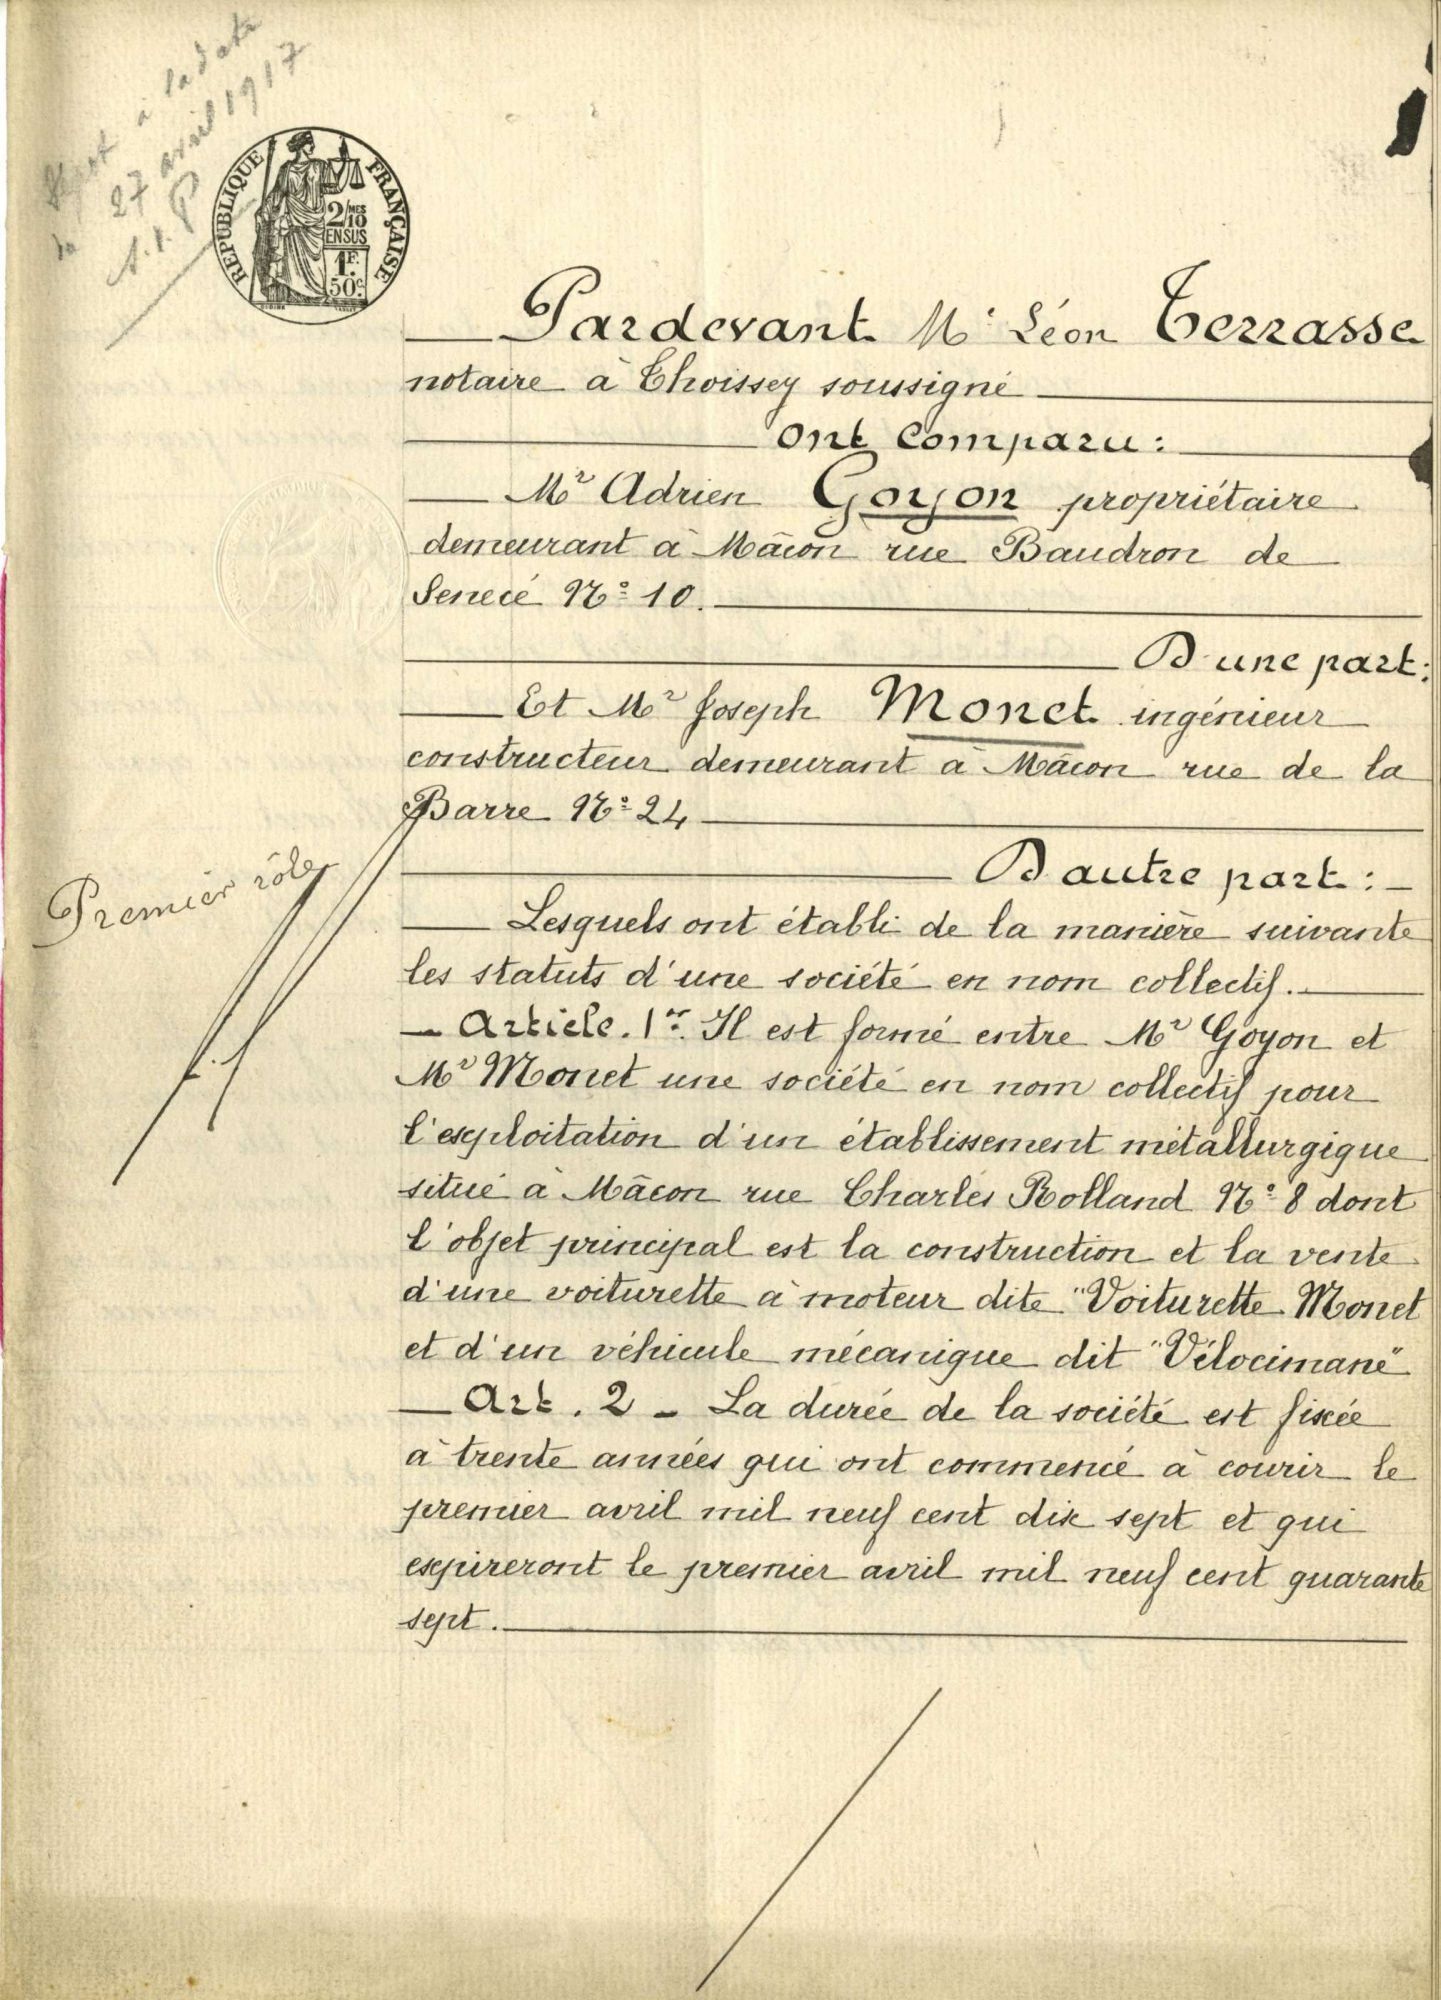 Dépôt à la date
du 27 avril 1917
RÉPUBLIQUE FRANÇAISE
2/10 MES
EN SUS
1F.
50c.
Pardevant Me Léon Terrasse
notaire à Thoissey soussigné
Ont Comparu :
Mr Adrien Goyon propriétaire
demeurant à Mâcon rue Baudron de
Senecé No 10.
D'une part :
Et Mr Joseph Monet ingénieur
constructeur demeurant à Mâcon rue de la
Barre No 24
D'autre part :
Premier rôle
Lesquels ont établi de la manière suivante
les statuts d'une société en nom collectif.
Article. 1er. Il est formé entre Mr Goyon et
Mr Monet une société en nom collectif pour
l'exploitation d'un établissement métallurgique
situé à Mâcon rue Charles Rolland No 8 dont
l'objet principal est la construction et la vente
d'une voiturette à moteur dite "Voiturette Monet
et d'un véhicule mécanique dit "Vélocimane"
Art. 2 - La durée de la société est fixée
à trente années qui ont commencé à courir le
premier avril mil neuf cent dix sept et qui
expireront le premier avril mil neuf cent quarante
sept.